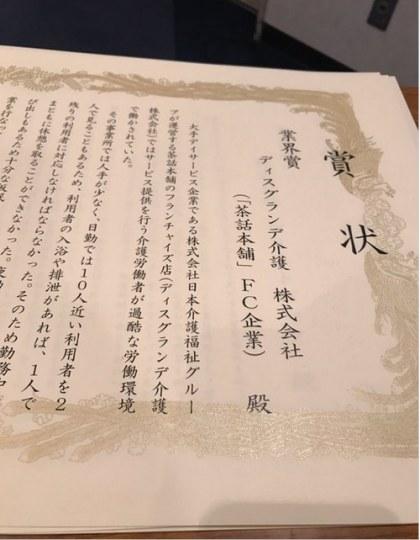 賞状
業界賞
ディスグランデ介護　株式会社
(「茶話本舗」ＦＣ企業)　殿
大手デイサービス企業である株式会社日本介護福祉グルー
プが運営する茶話本舗のフランチャイズ店(ディスグランデ介護
株式会社)ではサービス提供を行う介護労働者が過酷な労働環境
で働かされていた。
その事業所では人手が少なく、日勤では１０人近い利用者を２
人で見ることもあるため、利用者の入浴や排泄があれば、１人で
残りの利用者に対応しなければならなかった。そのため勤務中
まともに休憩を取ることができなかった。
び出しもあるため十分な仮眠
業を行なっ